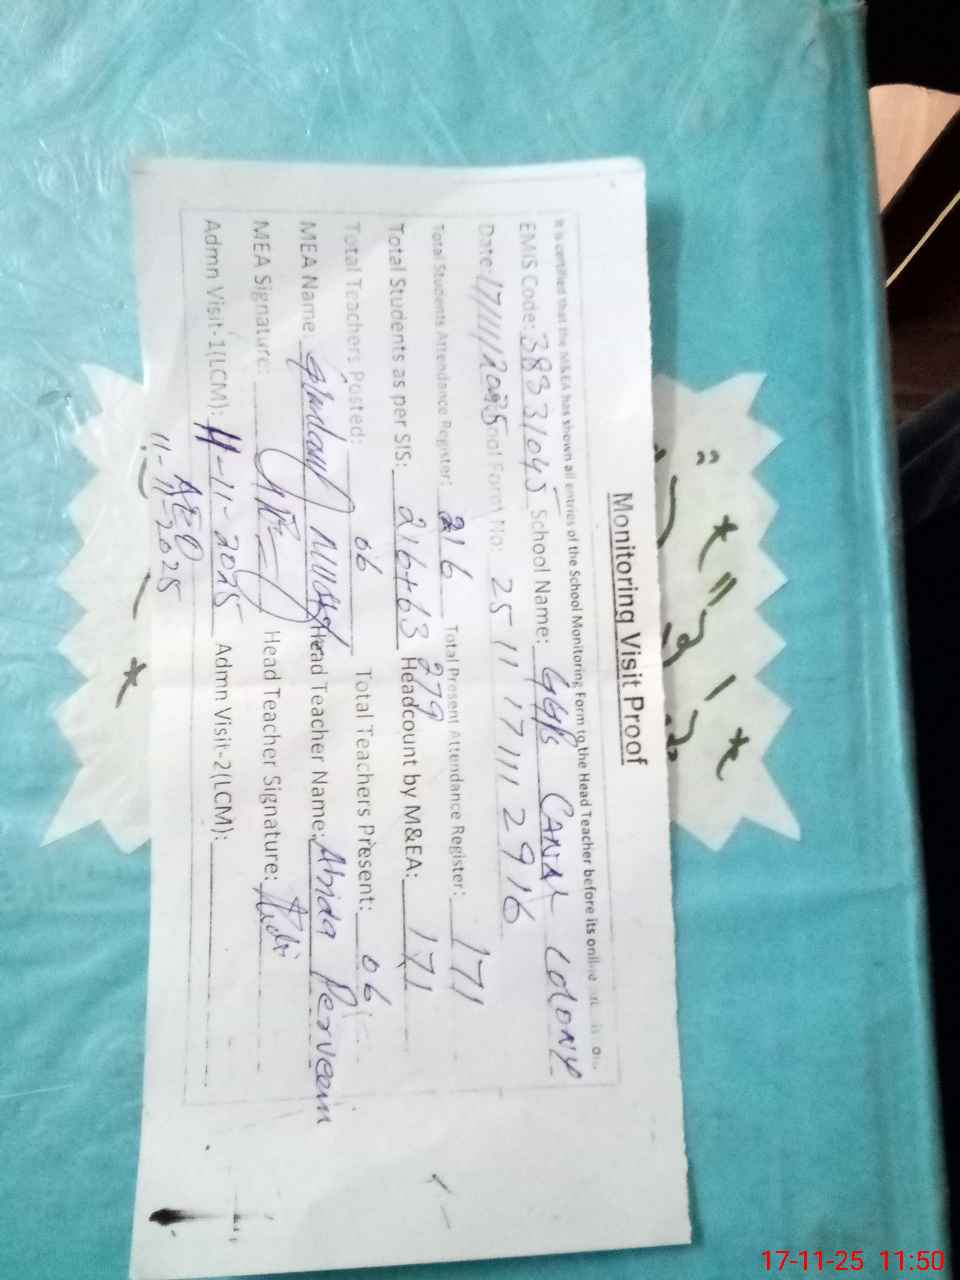 Monitoring Visit Proof
It is certified that the M&EA has shown all entries of the School Monitoring Form to the Head Teacher before its online
EMIS Code: 38331045 School Name: GGPS CANAL COLONY
Date: 17/11/2025 Form No: 25 11 17 111 2916
Total Students Attendance Register: 216 Total Present Attendance Register: 171
Total Students as per SIS: 216+63 279 Headcount by M&EA: 171
Total Teachers Posted: 06 Total Teachers Present: 06
MEA Name: Head Teacher Name: Abida Perveein
MEA Signature: Head Teacher Signature: Abdi
Admn Visit-1(LCM): 11-11-2025 Admn Visit-2(LCM):
AEO
11-11-2025
17-11-25 11:50